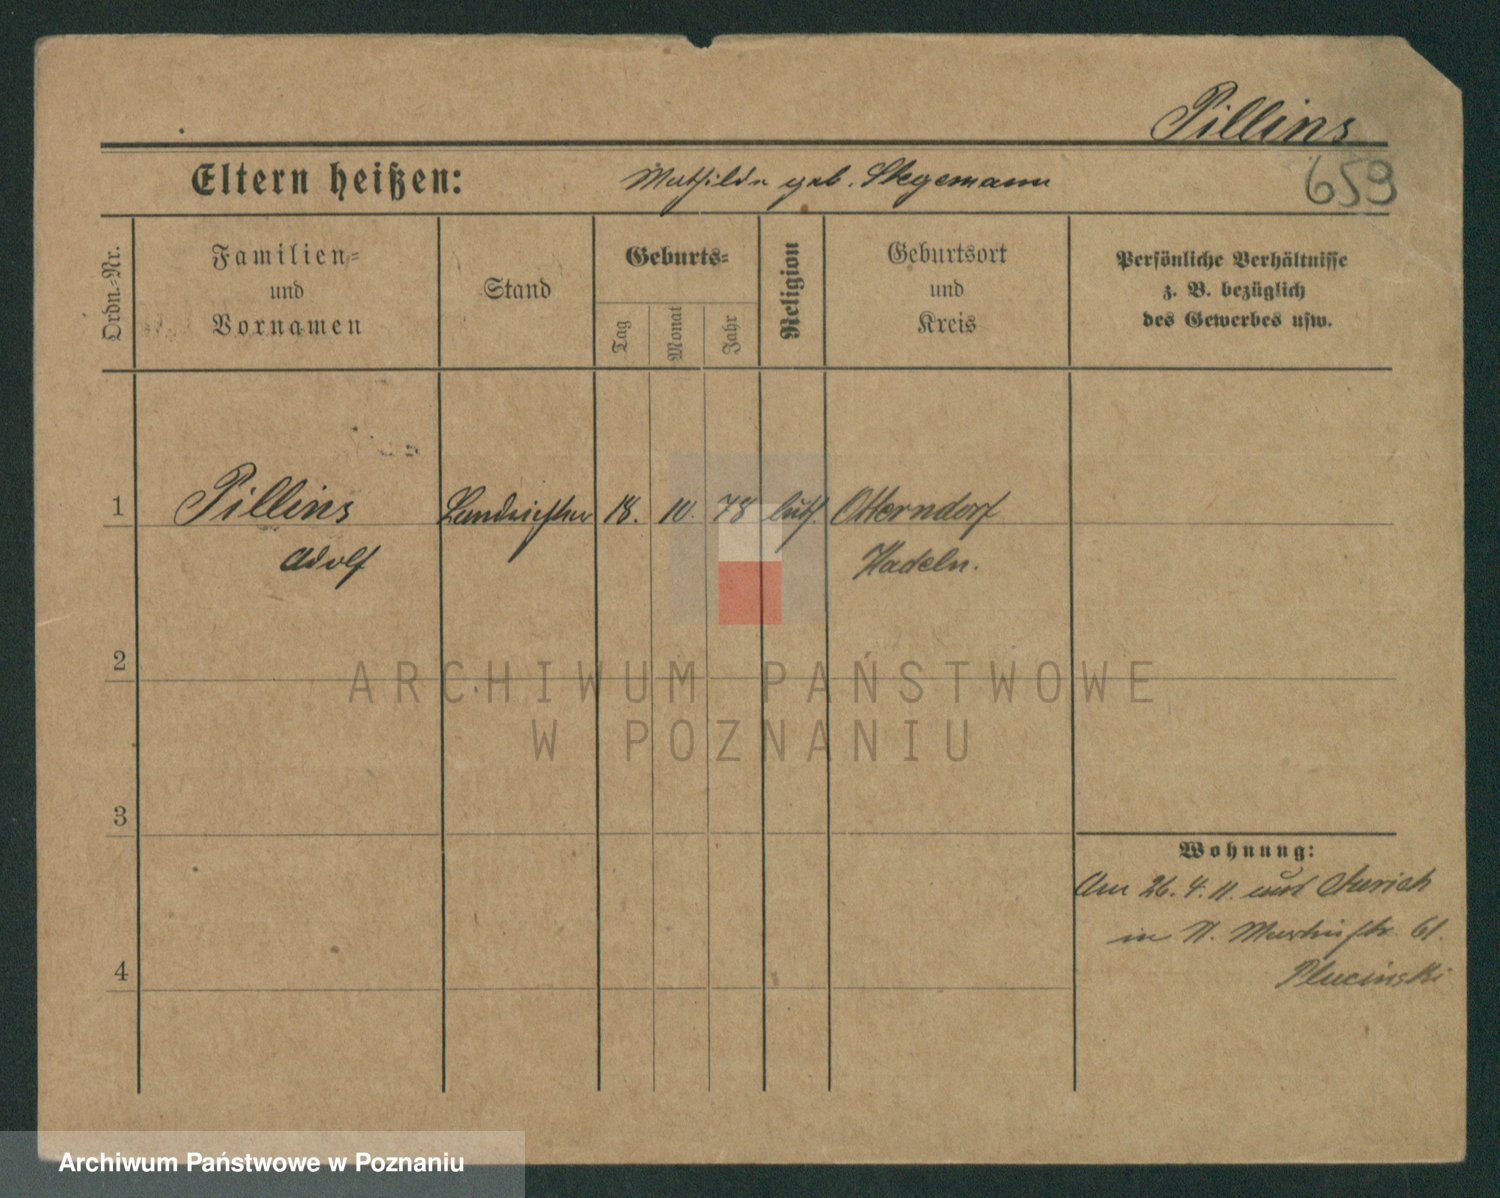 Pillins
Eltern heißen: Mathilde geb. Stegemann
659
Ordn.-Nr.
Familien- und Vornamen
Stand
Geburts-
Tag
Monat
Jahr
Religion
Geburtsort und Kreis
Persönliche Verhältnisse
z. B. bezüglich
des Gewerbes usw.
1 Pillins Landrichter 18. 10. 78 luth. Otterndorf
Adolf Hadeln.
2
ARCHIWUM PAŃSTWOWE
W POZNANIU
3
Wohnung:
Am 26. 4. 11. aus Aurich
in St. Martinstr. 61.
Plucinski
4
Archiwum Państwowe w Poznaniu